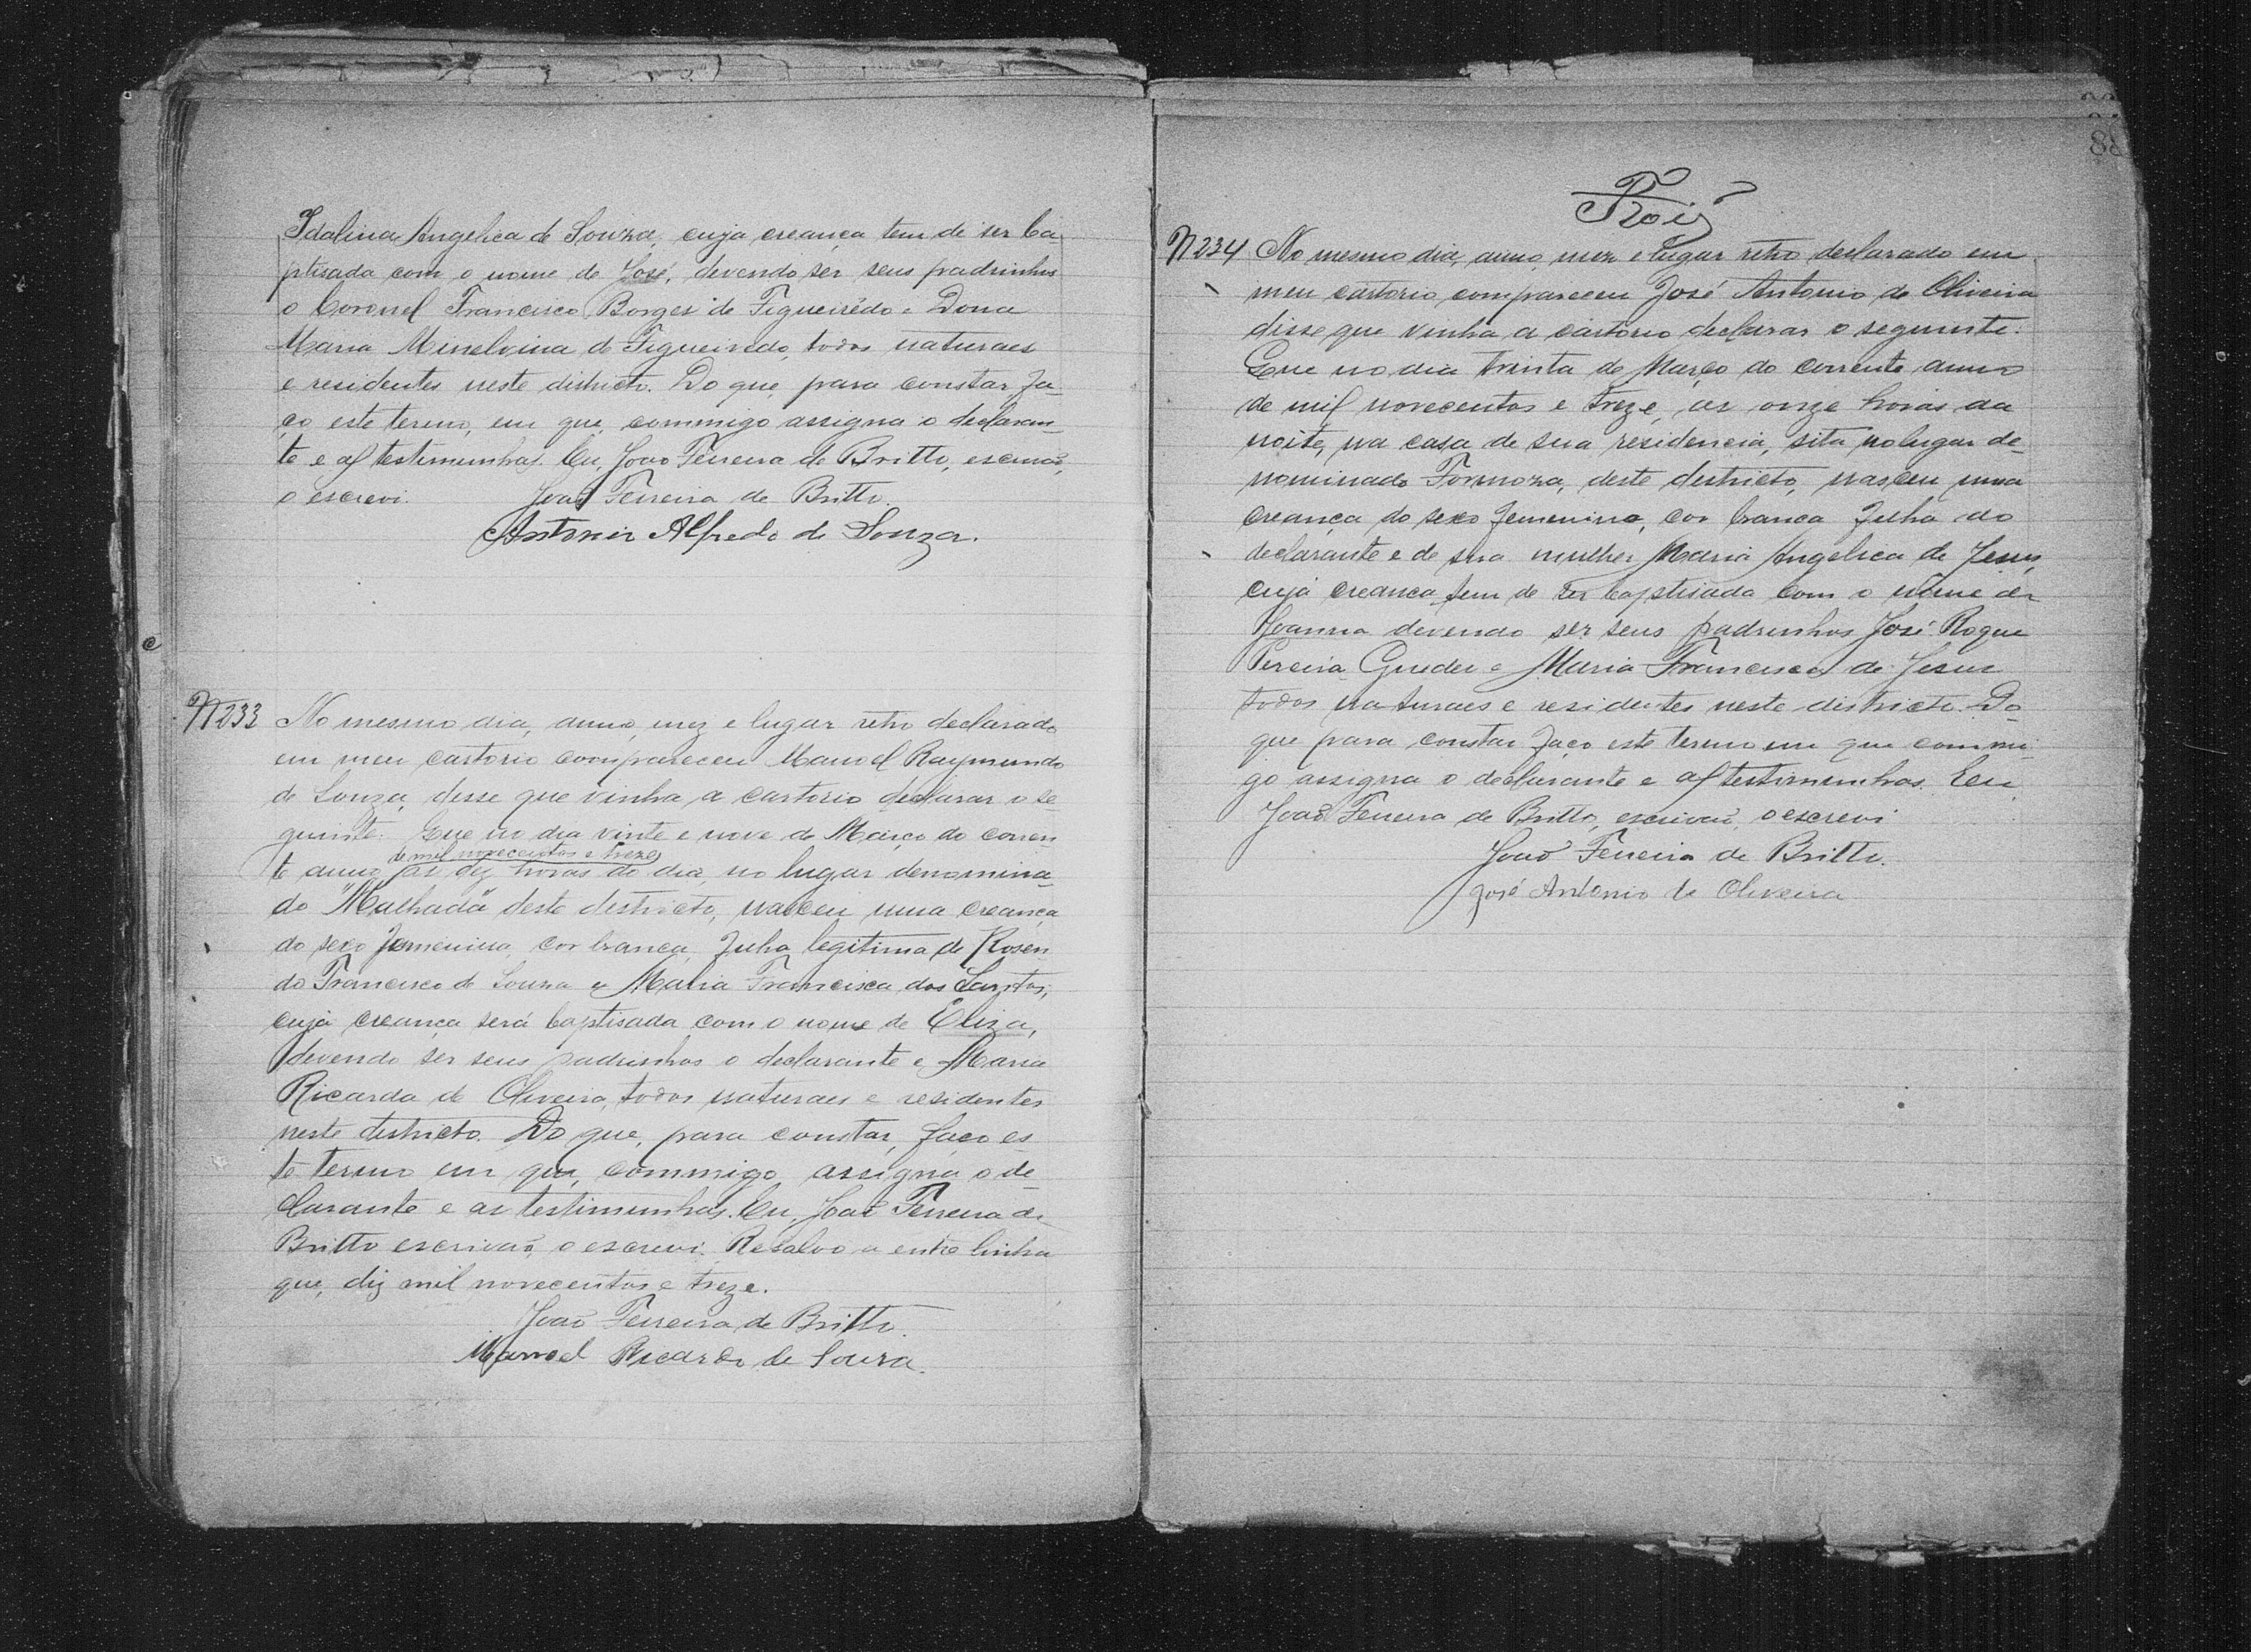 Idalina Angelica de Souza, cuja creança tem de ser ba
ptisada com o nome de José, devendo ser seus padrinhos
o Coronel Francisco Borges de Figueirêdo e Dona
Maria Minelvina de Figueiredo, todos naturaes
e residentes neste districto. Do que, para constar fa-
ço este termo, em que, commigo assigna o declaran-
te e as testimunhas. Eu, João Ferreira de Britto, escrivão,
o escrevi.
João Ferreira de Britto.
Antonio Alfredo de Souza.
N 233 No mesmo dia, anno, mez e lugar retro declarado
em meu cartorio compareceu Manoel Raymundo
de Souza, disse que vinha a cartorio declarar o se-
guinte. Que no dia vinte e nove de Março do corren
de mil novecentos e treze
te anno, as dez horas do dia, no lugar denomina-
do "Malhada" deste destricto, nasceu uma creança
do sexo femenino, cor branca, filha legitima de Rosen
do Francisco de Souza e Maria Francisca dos Santos,
cuja creança será baptisada com o nome de Eliza,
devendo ser seus padrinhos o declarante e Maria
Ricarda de Oliveira, todos naturaes e residentes
neste districto. Do que, para constar, faço es-
te termo em que, commigo assigna o de-
clarante e as testimunhas. Eu, João Ferreira de
Britto escrivão, o escrevi. Resalvo a entre linha
que, diz mil novecentos e treze.
João Ferreira de Britto.
Manoel Ricardo de Souza.
88
N 234 No mesmo dia, anno, mez e lugar retro declarado em
meu cartorio compareceu José Antonio de Oliveira
disse que vinha a cartorio declarar o seguinte.
Que no dia trinta de Março do corrente anno
de mil novecentos e treze, as onze horas da
noite, na casa de sua residencia, sita no lugar de-
nominado Formoza, deste destricto, nasceu uma
creança do sexo femenino, cor branca filha do
declarante e de sua mulher Maria Angelica de Jesus,
cuja creança tem de ser baptisada com o nome de
Joanna devendo ser seus padrinhos José Roque
Pereira Guedes e Maria Francisca de Jesus
todos naturaes e residentes neste districto. Do
que para constar faço este termo em que commi-
go assigna o declarante e as testimunhas. Eu
João Ferreira de Britto, escrivão, o escrevi
João Ferreira de Britto.
José Antonio de Oliveira